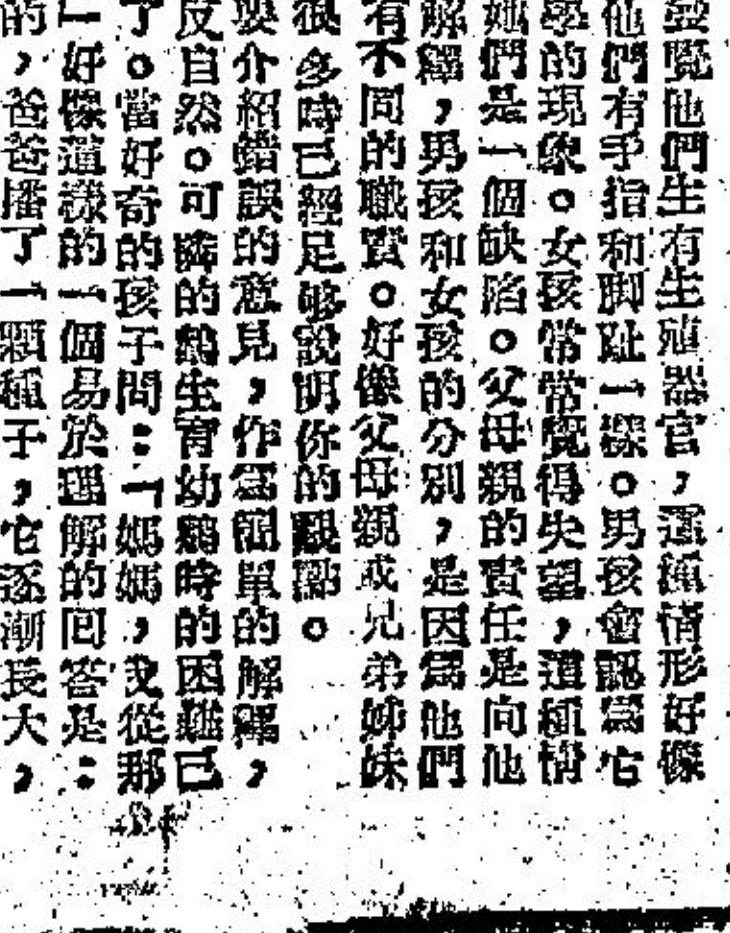 發覺他們生有生殖器官，這種情形好像
他們有手指和脚趾一樣。男孩會認爲它
學的現象。女孩常常覺得失望，這種情
她們是一個缺陷。父母親的責任是向他
解釋，男孩和女孩的分別，是因爲他們
有不同的職責。好像父母親或兄弟姊妹
很多時已經足够說明你的觀點。
要介紹錯誤的意見，作爲簡單的解釋，
反自然。可憐的鵝生育幼鵝時的困難已
了。當好奇的孩子問：「媽媽，我從那
「好像這樣的一個易於理解的回答是：
的，爸爸播了一顆種子，它逐漸長大，